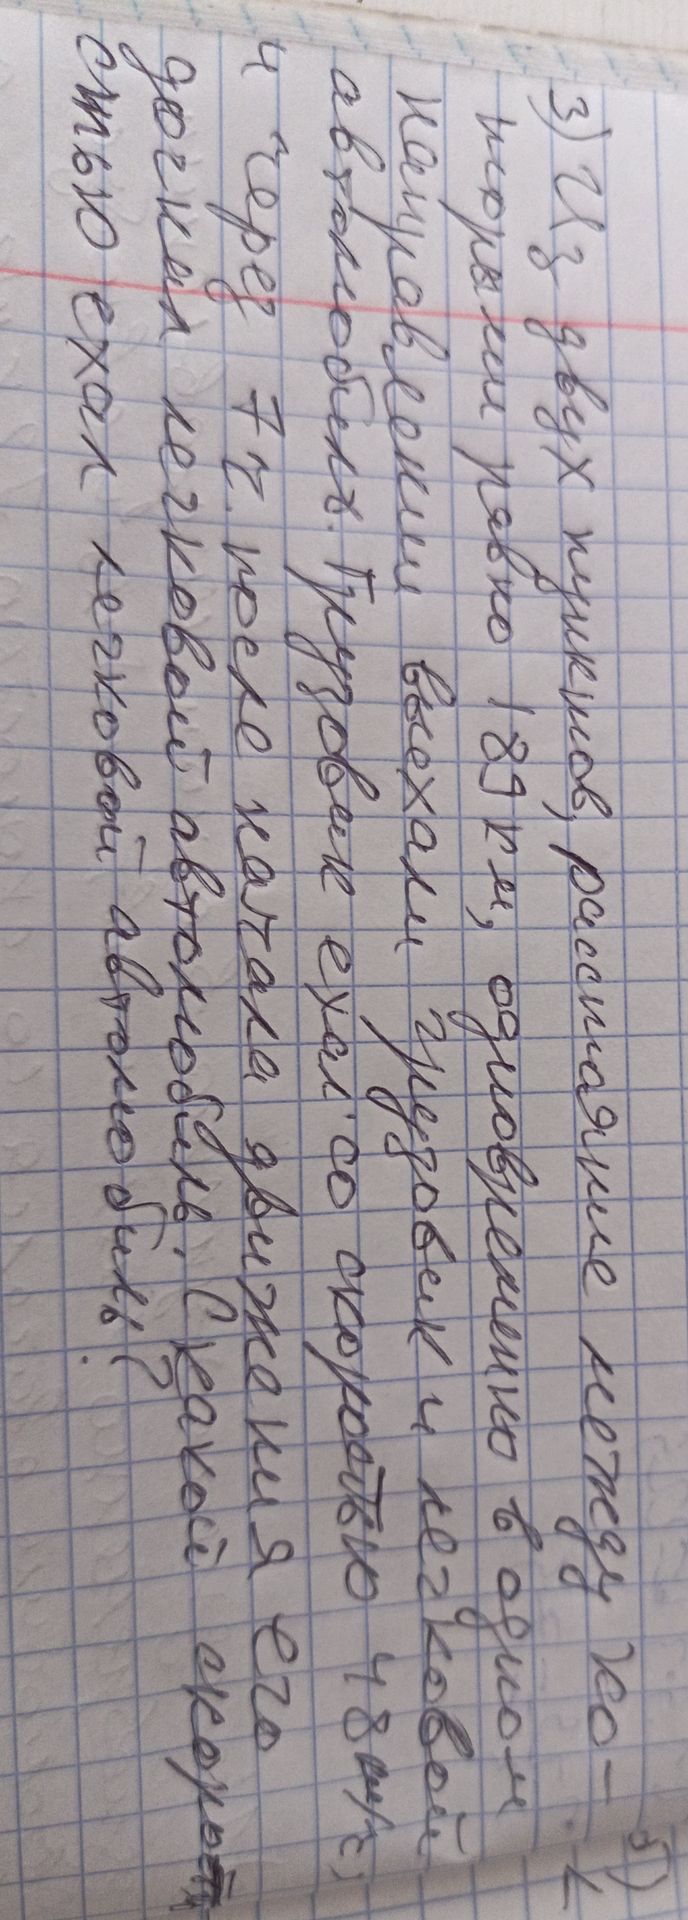 3) Из двух пунктов, расстояние между ко-
торыми равно 189 км, одновременно в одном
направлении выехали грузовик и легковой
автомобиль. Грузовик ехал со скоростью 48 км/ч,
и через 7 ч. после начала движения его
догнал легковой автомобиль. С какой скоро
стью ехал легковой автомобиль?